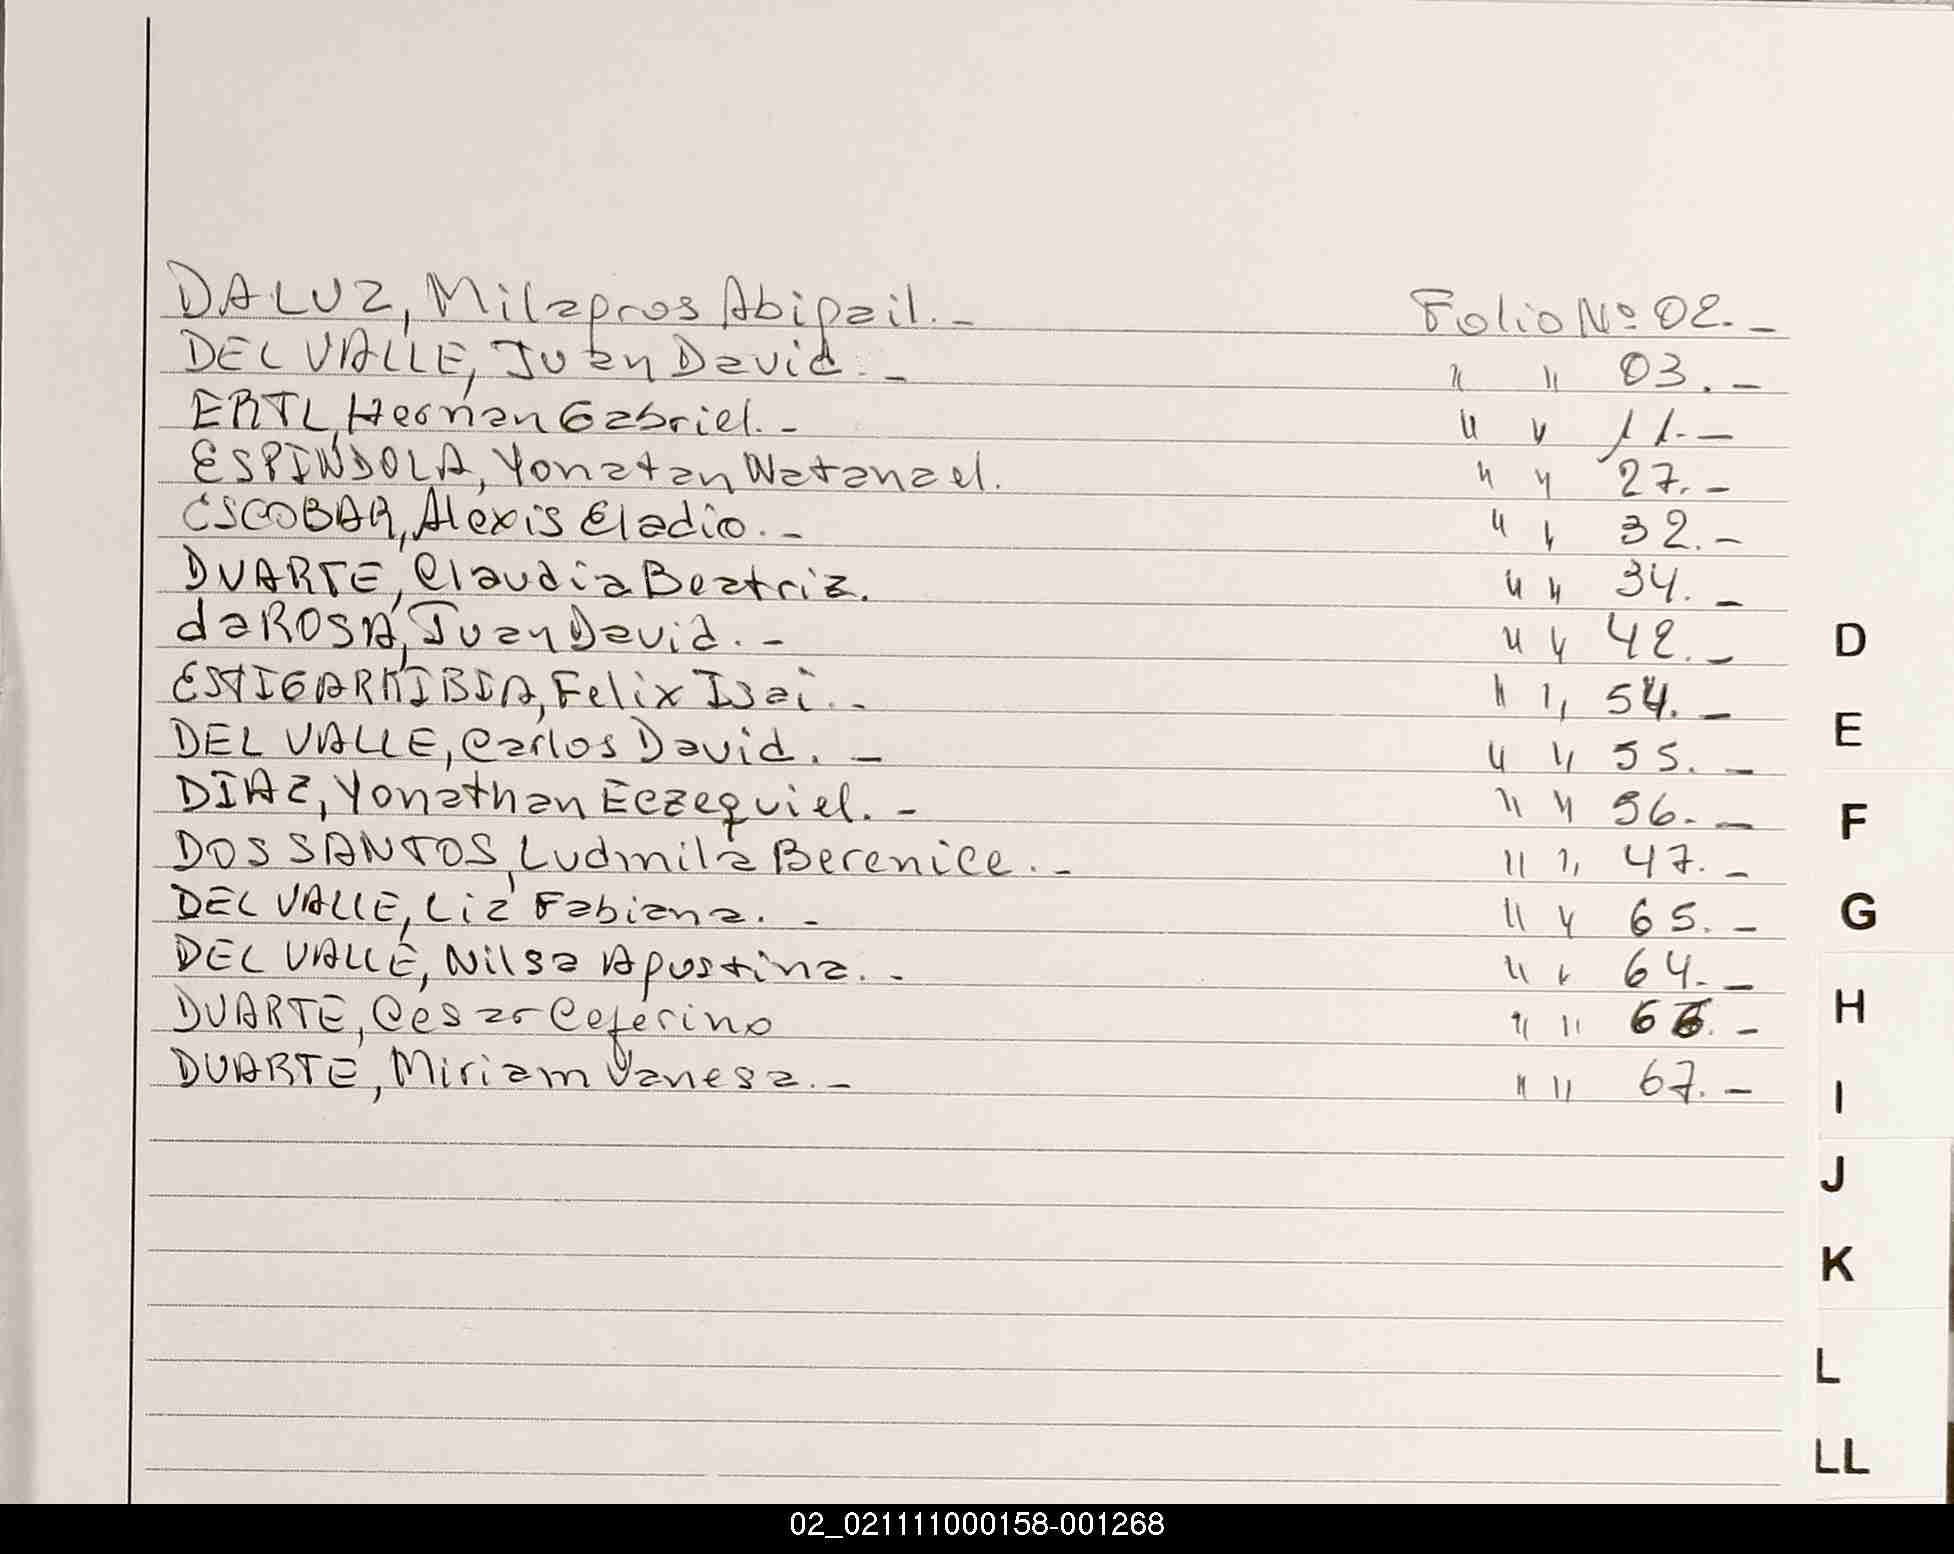 DALUZ, Milagros Abigail. - Folio Nº 02. -
DEL VALLE, Juan David. - " " 03. -
ERTL, Hernan Gabriel. - " " 11. -
ESPINDOLA, Yonatan Natanael. " " 27. -
ESCOBAR, Alexis Eladio. - " " 32. -
DUARTE, Claudia Beatriz. " " 34. -
da ROSA, Juan David. - " " 42. -
ESTIGARRIBIA, Felix Isai. - " " 54. -
DEL VALLE, Carlos David. - " " 55. -
DIAZ, Yonathan Eczequiel. - " " 56. -
DOS SANTOS, Ludmila Berenice. - " " 47. -
DEL VALLE, Liz Fabiana. - " " 65. -
DEL VALLE, Nilsa Agustina. - " " 64. -
DUARTE, Cesar Ceferino " " 66. -
DUARTE, Miriam Vanesa. - " " 67. -
D
E
F
G
H
I
J
K
L
LL
02_021111000158-001268